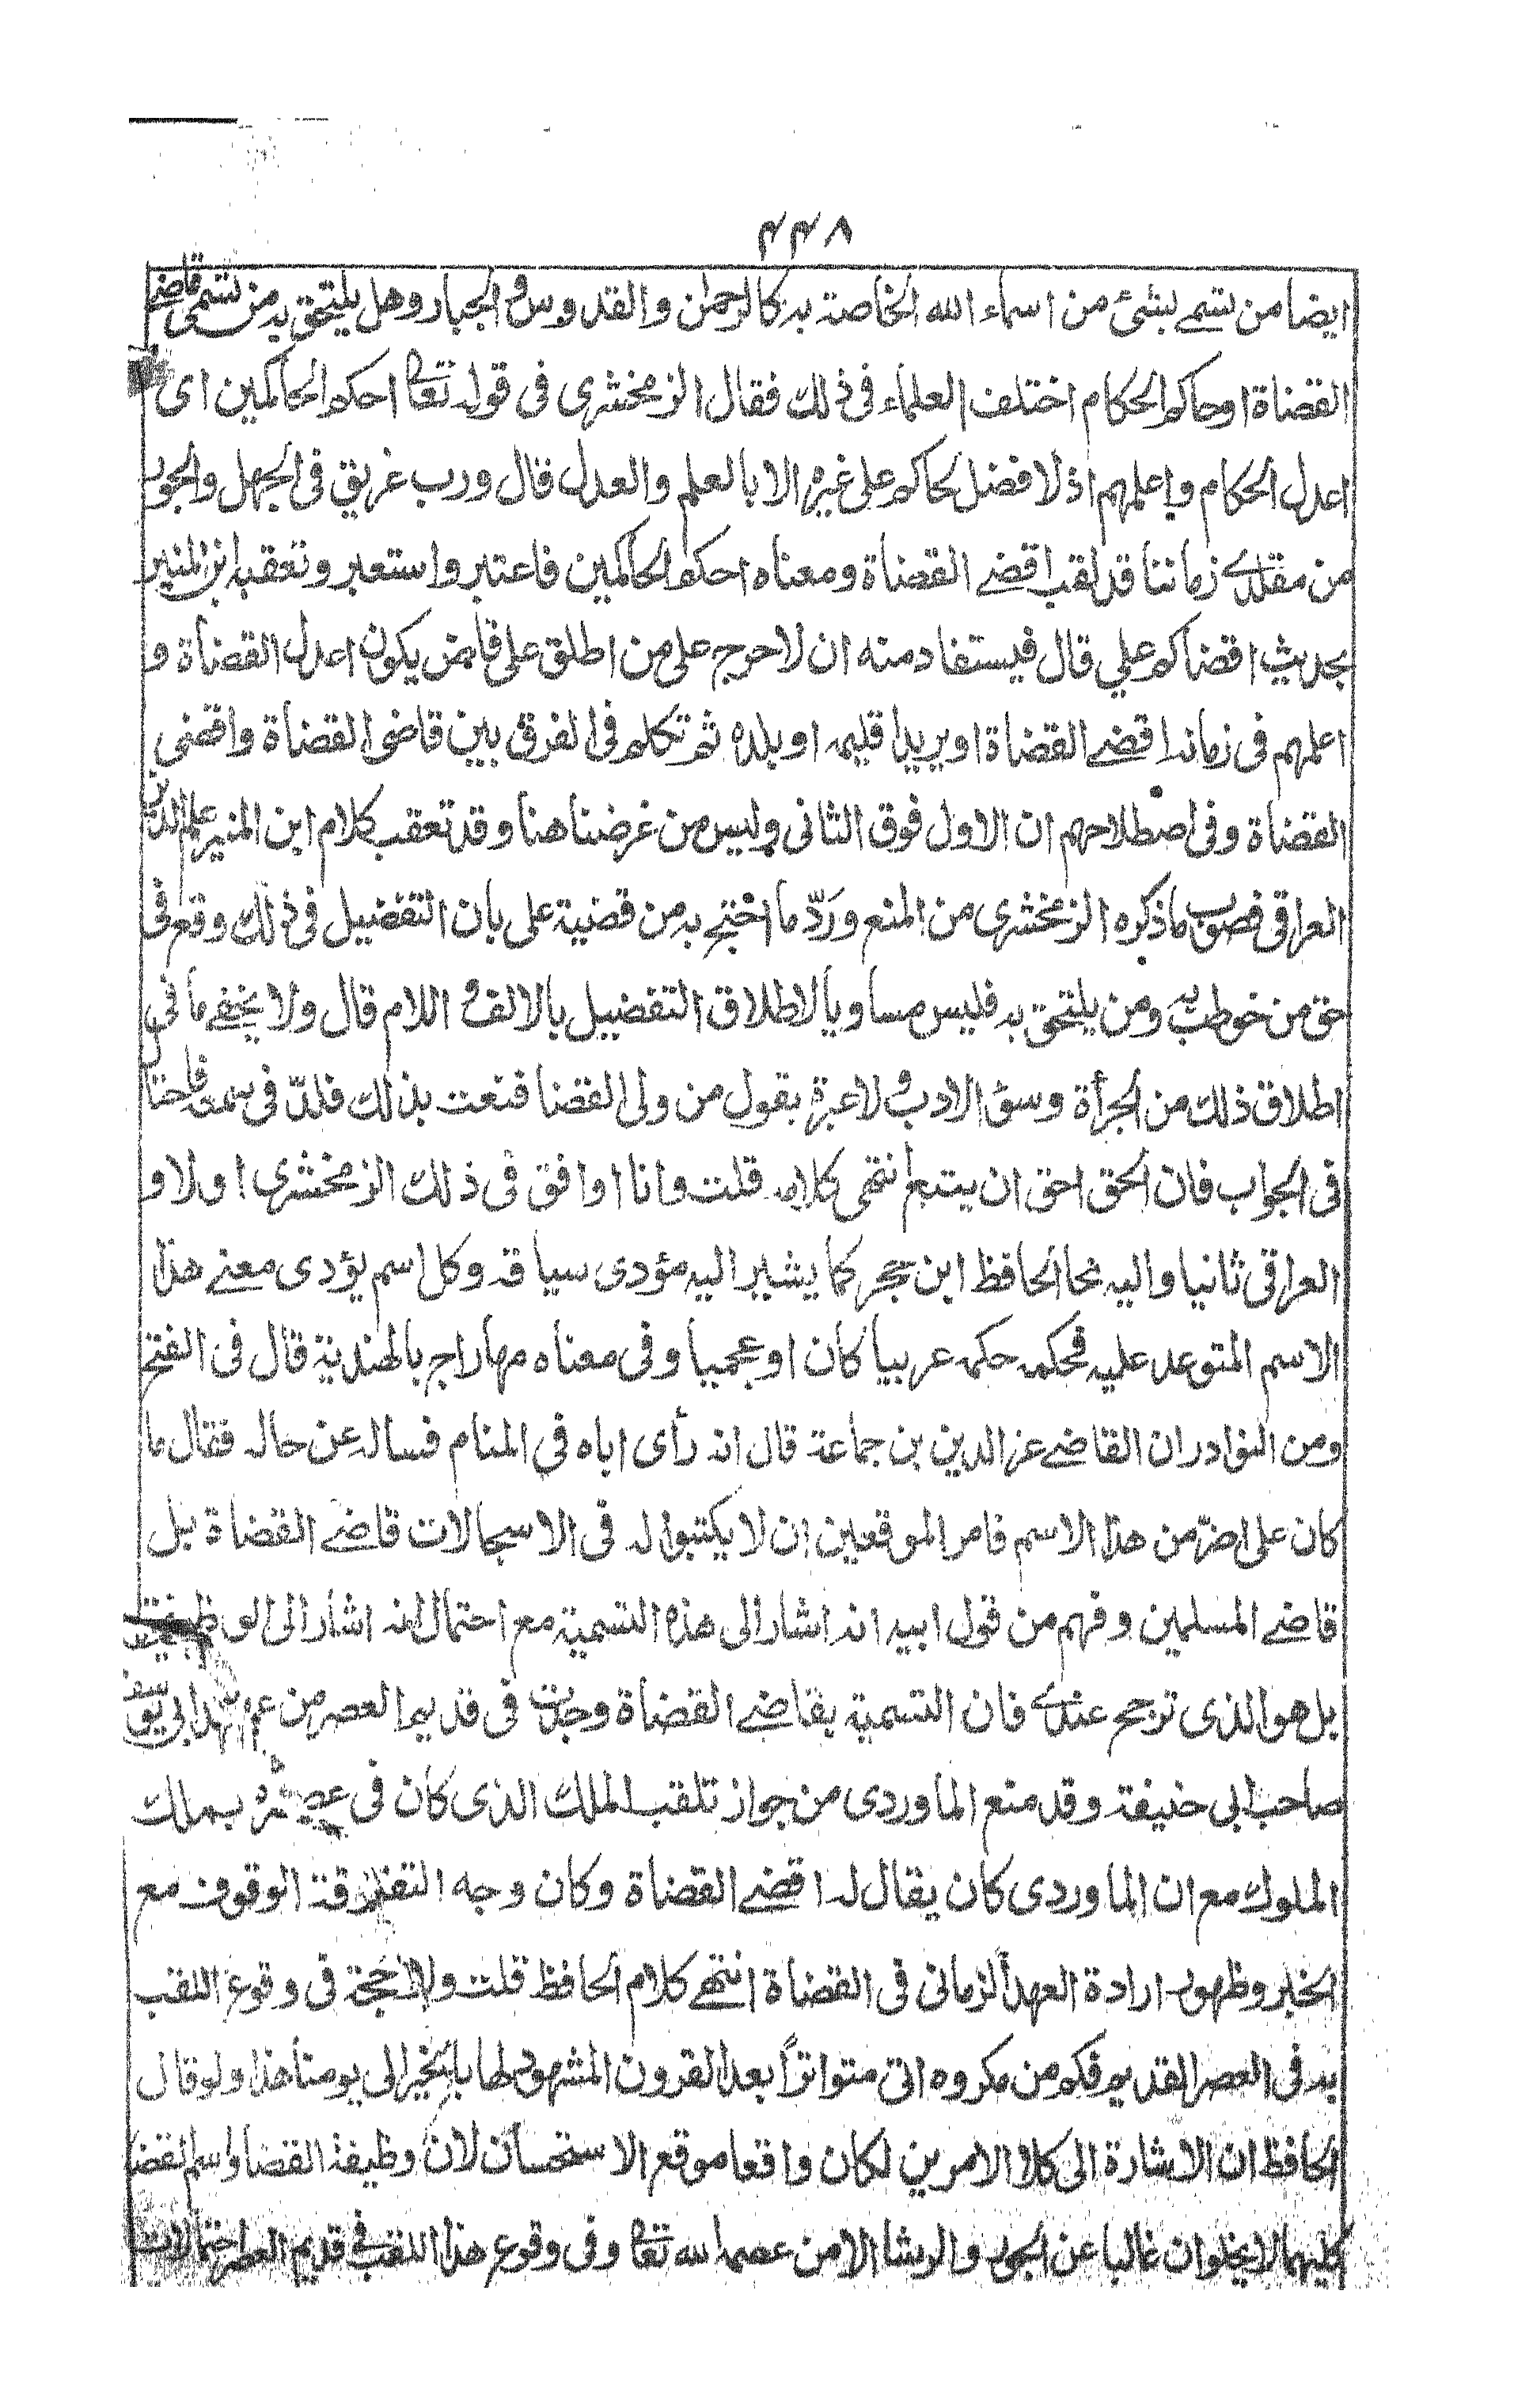 ۴۴۸
ايضا من تسمى بشئ من اسماء الله الخاصة به كالرحمن والقدوس والجبار وهل يلتحق به من تسمى قاضى
القضاة او حاكم الحكام اختلف العلماء فى ذلك فقال الزمخشرى فى قوله تعا احكم الحاكمين اى
اعدل الحكام واعلمهم اذ لا فضل لحاكم على غيره الا بالعلم والعدل قال ورب غريق فى الجهل والجور
من مقلدى زماننا قد لقب اقضے القضاة ومعناه احكم الحاكمين فاعتبر واستعبر وتعقبه ابن المنير
بحديث اقضاكم علي قال فيستفاد منه ان لا حرج على من اطلق على قاض يكون اعدل القضاة و
اعلمهم فى زمانه اقضے القضاة او يريد اقليمه او بلده ثم تكلم فى الفرق بين قاضى القضاة واقضى
القضاة وفى اصطلاحهم ان الاول فوق الثانى وليس من غرضنا هنا وقد تعقب كلام ابن المنير علم الدين
العراقى فصوب ما ذكره الزمخشرى من المنع وردّ ما احتج به من قضية على بان التفضيل فى ذلك وقع فى
حق من خوطب به ومن يلتحق به فليس مساويا لاطلاق التفضيل بالالف و اللام قال ولا يخفے ما فى
اطلاق ذلك من الجرأة وسوء الادب ولا عبرة بقول من ولى القضا فنعت بذلك فلذّ فى سمعه فاحتال
فى الجواب فان الحق احق ان يتبع انتهى كلامه قلت وانا اوافق فى ذلك الزمخشرى اولا و
العراقى ثانيا واليه نحا الحافظ ابن حجر كما يشير اليه مؤدى سياقه وكل اسم يؤدى معنے هذا
الاسم المتوعد عليه فحكمه حكمه عربيا كان او عجميا وفى معناه مهاراج بالهندية قال فى الفتح
ومن النوادر ان القاضے عز الدين بن جماعة قال انه رأى اباه في المنام فساله عن حاله فقال ما
كان على اضر من هذا الاسم فامر الموقعين ان لا يكتبوا له فى الاسجالات قاضے القضاة بل
قاضے المسلمين وفهم من قول ابيه انه اشار الى هذه التسمية مع احتمال انه اشار الى الوظيفة
بل هو الذى ترجح عندى فان التسمية بقاضے القضاة وجدت فى قديم العصر من عهد ابى يوسف
صاحب ابى حنيفة وقد منع الماوردى من جواز تلقب الملك الذى كان فى عصره بملك
الملوك مع ان الماوردى كان يقال له اقضے القضاة وكان وجه التفرقة الوقوف مع
الخبر وظهور ارادة العهد الزمانى فى القضاة انتهے كلام الحافظ قلت ولا حجة فى وقوع اللقب
به فى العصر القديم فكم من مكروه اتى متواتراً بعد القرون المشهود لها بالخير الى يومنا هذا ولو قال
الحافظ ان الاشارة الى كلا الامرين لكان واقعا موقع الاستحسان لان وظيفة القضا واسم القضا
كليهما لا يخلوان غالبا عن الجور والرشا الا من عصمه الله تعا وفى وقوع هذا اللقب فے قديم العصر احتمالات